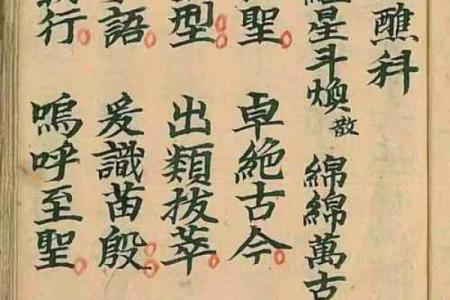 醮科
星斗煥散 綿綿萬古
聖。 卓絕古今。
型。 出類拔萃。
語。 爰識苗殷。
行。 嗚呼至聖。